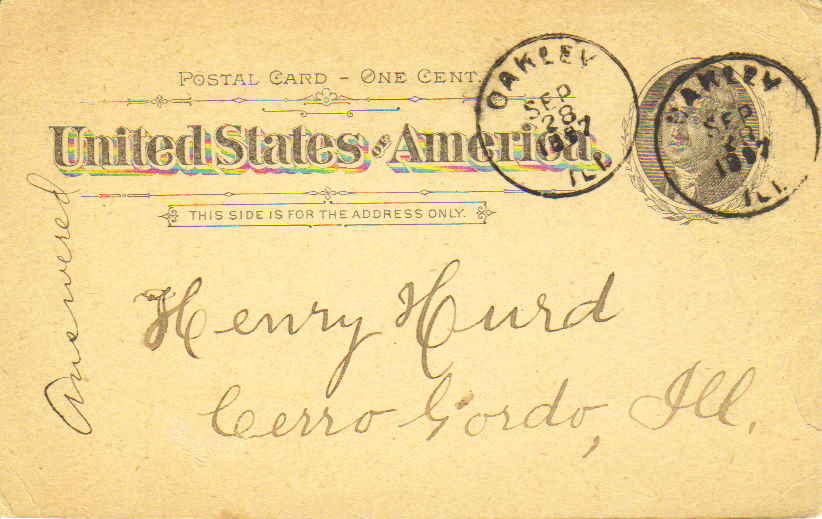 POSTAL CARD - ONE CENT.
United States of America
THIS SIDE IS FOR THE ADDRESS ONLY.
OAKLEY
SEP
28
1897
ILL.
OAKLEY
SEP
28
1897
ILL.
Answered
Henry Hurd
Cerro Gordo, Ill.